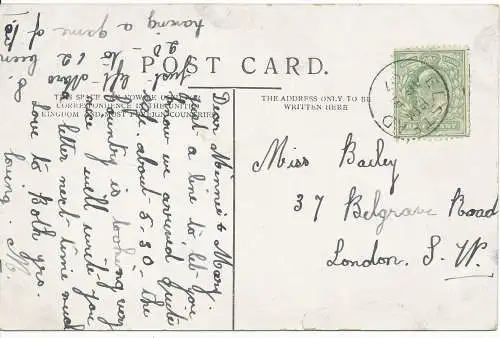 POST CARD.
THE SPACE BELOW MAY BE USED FOR
CORRESPONDENCE IN THE UNITED
KINGDOM AND MOST FOREIGN COUNTRIES
THE ADDRESS ONLY TO BE
WRITTEN HERE
Dear Minnie & Mary.
Just a line to let you
know we arrived quite
safe about 5-30- the
Country is looking very
nice well write you
letter next time much
Love to Both yrs.
loving
having a game of
Miss Bailey
37 Belgrave Road
London. S. W.